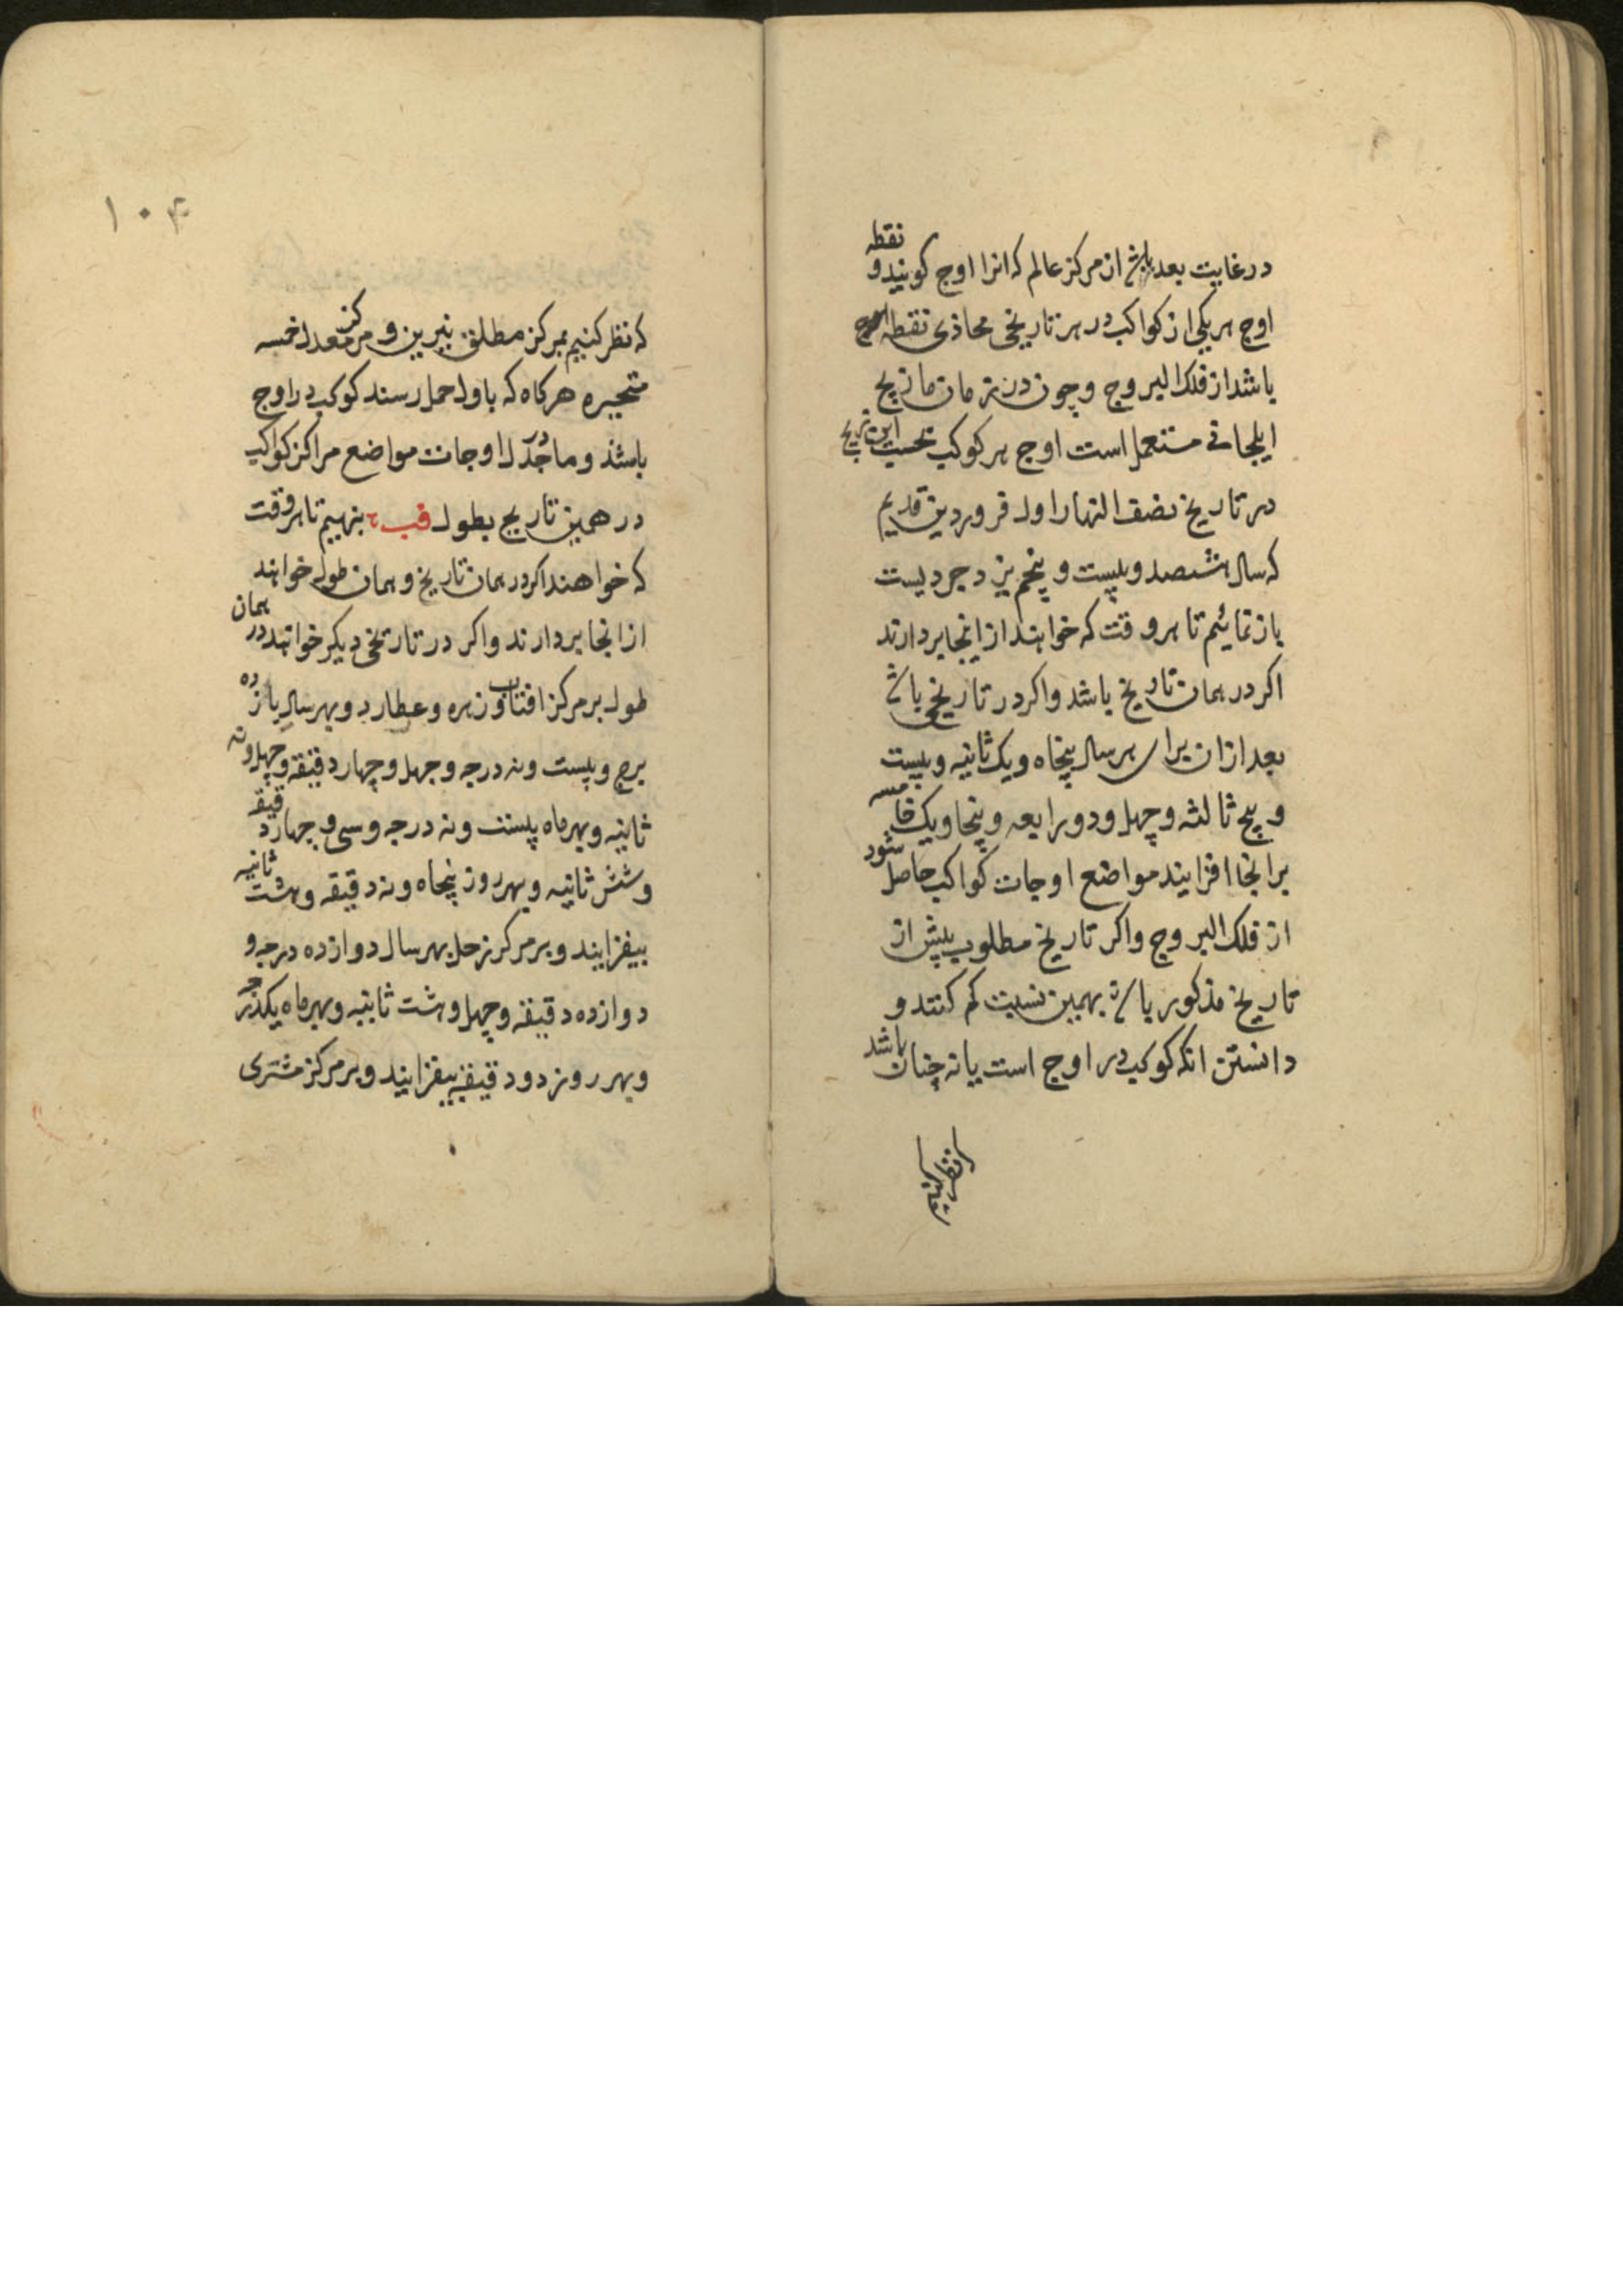 در غایت بعد باشد از مرکز عالم که انرا اوج کویند و نقطه
اوج هر یکی از کواکب در هر تاریخی محاذی نقطه
باشد از فلک البروج و چون در زمان ما زیج
ایلخانی مستعمل است اوج هر کوکب بحسب این زیج
در تاریخ نصف النهار اول فروردین قدیم
که سال هشتصد و بیست و پنجم یزدجردیست
باز نمائیم تا هر وقت که خواهند از اینجا بردارند
اکر در همان تاریخ باشد واکر در تاریخی باشد
بعد از ان برای هر سال پنجاه و یک ثانیه و بیست
و پنج ثالثه و چهل و دو رابعه و پنجاویک خامسه
بر انجا افزایند مواضع اوجات کواکب حاصل شود
از فلک البروج واکر تاریخ مطلوب پیش از
تاریخ مذکور باشد بهمین نسبت کم کنند و
دانستن انکه کوکب در اوج است یا نه چنان باشد
که نظر کنیم
۱۰۴
که نظر کنیم بمرکز مطلق نیرین و مرکز معدل خمسه
متحیره هرکاه که باول حمل رسند کوکب در اوج
باشد و ما جدول اوجات مواضع مراکز کواکب
در همین تاریخ بطول فب بنهیم تا هر وقت
که خواهند اکر در همان تاریخ و همان طول خواهند
از انجا بردارند واکر در تاریخی دیکر خواهند در همان
طول بر مرکز افتاب و زهره و عطارد و بهر سال یازده
برج و بیست و نه درجه و چهل و چهار دقیقه و چهل و نه
ثانیه و بهر ماه بیست و نه درجه و سی و چهار دقیقه
و شش ثانیه و بهر روز پنجاه و نه دقیقه و هشت ثانیه
بیفزایند و بر مرکز زحل بهر سال دوازده درجه و
دوازده دقیقه و چهل و هشت ثانیه و بهر ماه یکدرجه
و بهر روز دو دقیقه بیفزایند و بر مرکز مشتری